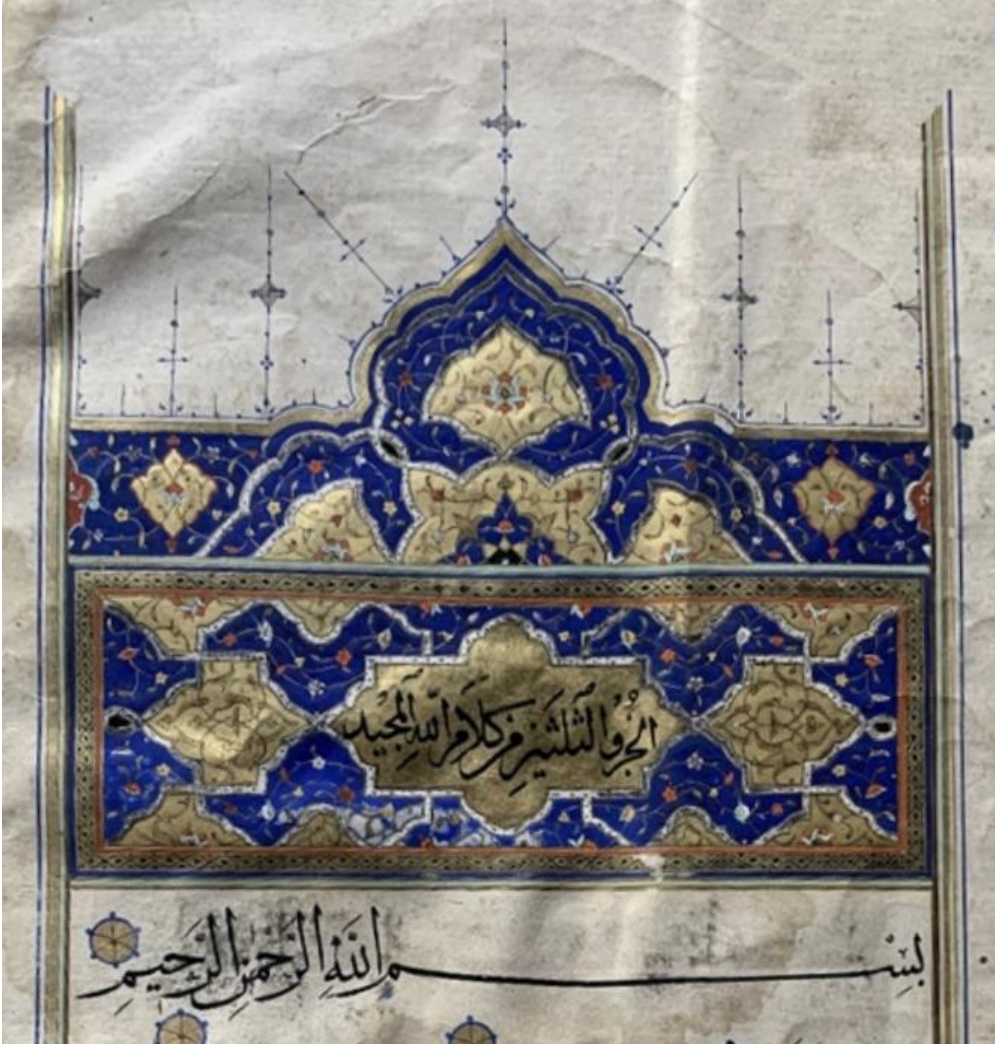 الجزو الثلثين من كلام الله المجيد
بِسْمِ اللهِ الرَّحْمنِ الرَّحِيمِ